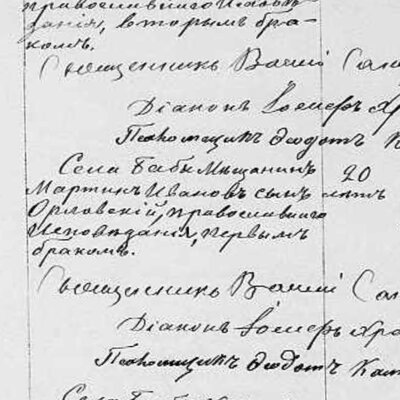 православнаго Испове-
данія, вторымъ бра-
комъ.
Священникъ
Діаконъ Іосифъ
Псаломщикъ Ѳеодотъ К
Села Бабки Мѣщанинъ 20
Мартинъ Ивановъ сынъ лѣтъ
Орловскій, православнаго
Исповѣданія, первымъ
бракомъ.
Священникъ
Діаконъ Іосифъ
Псаломщикъ Ѳеодотъ